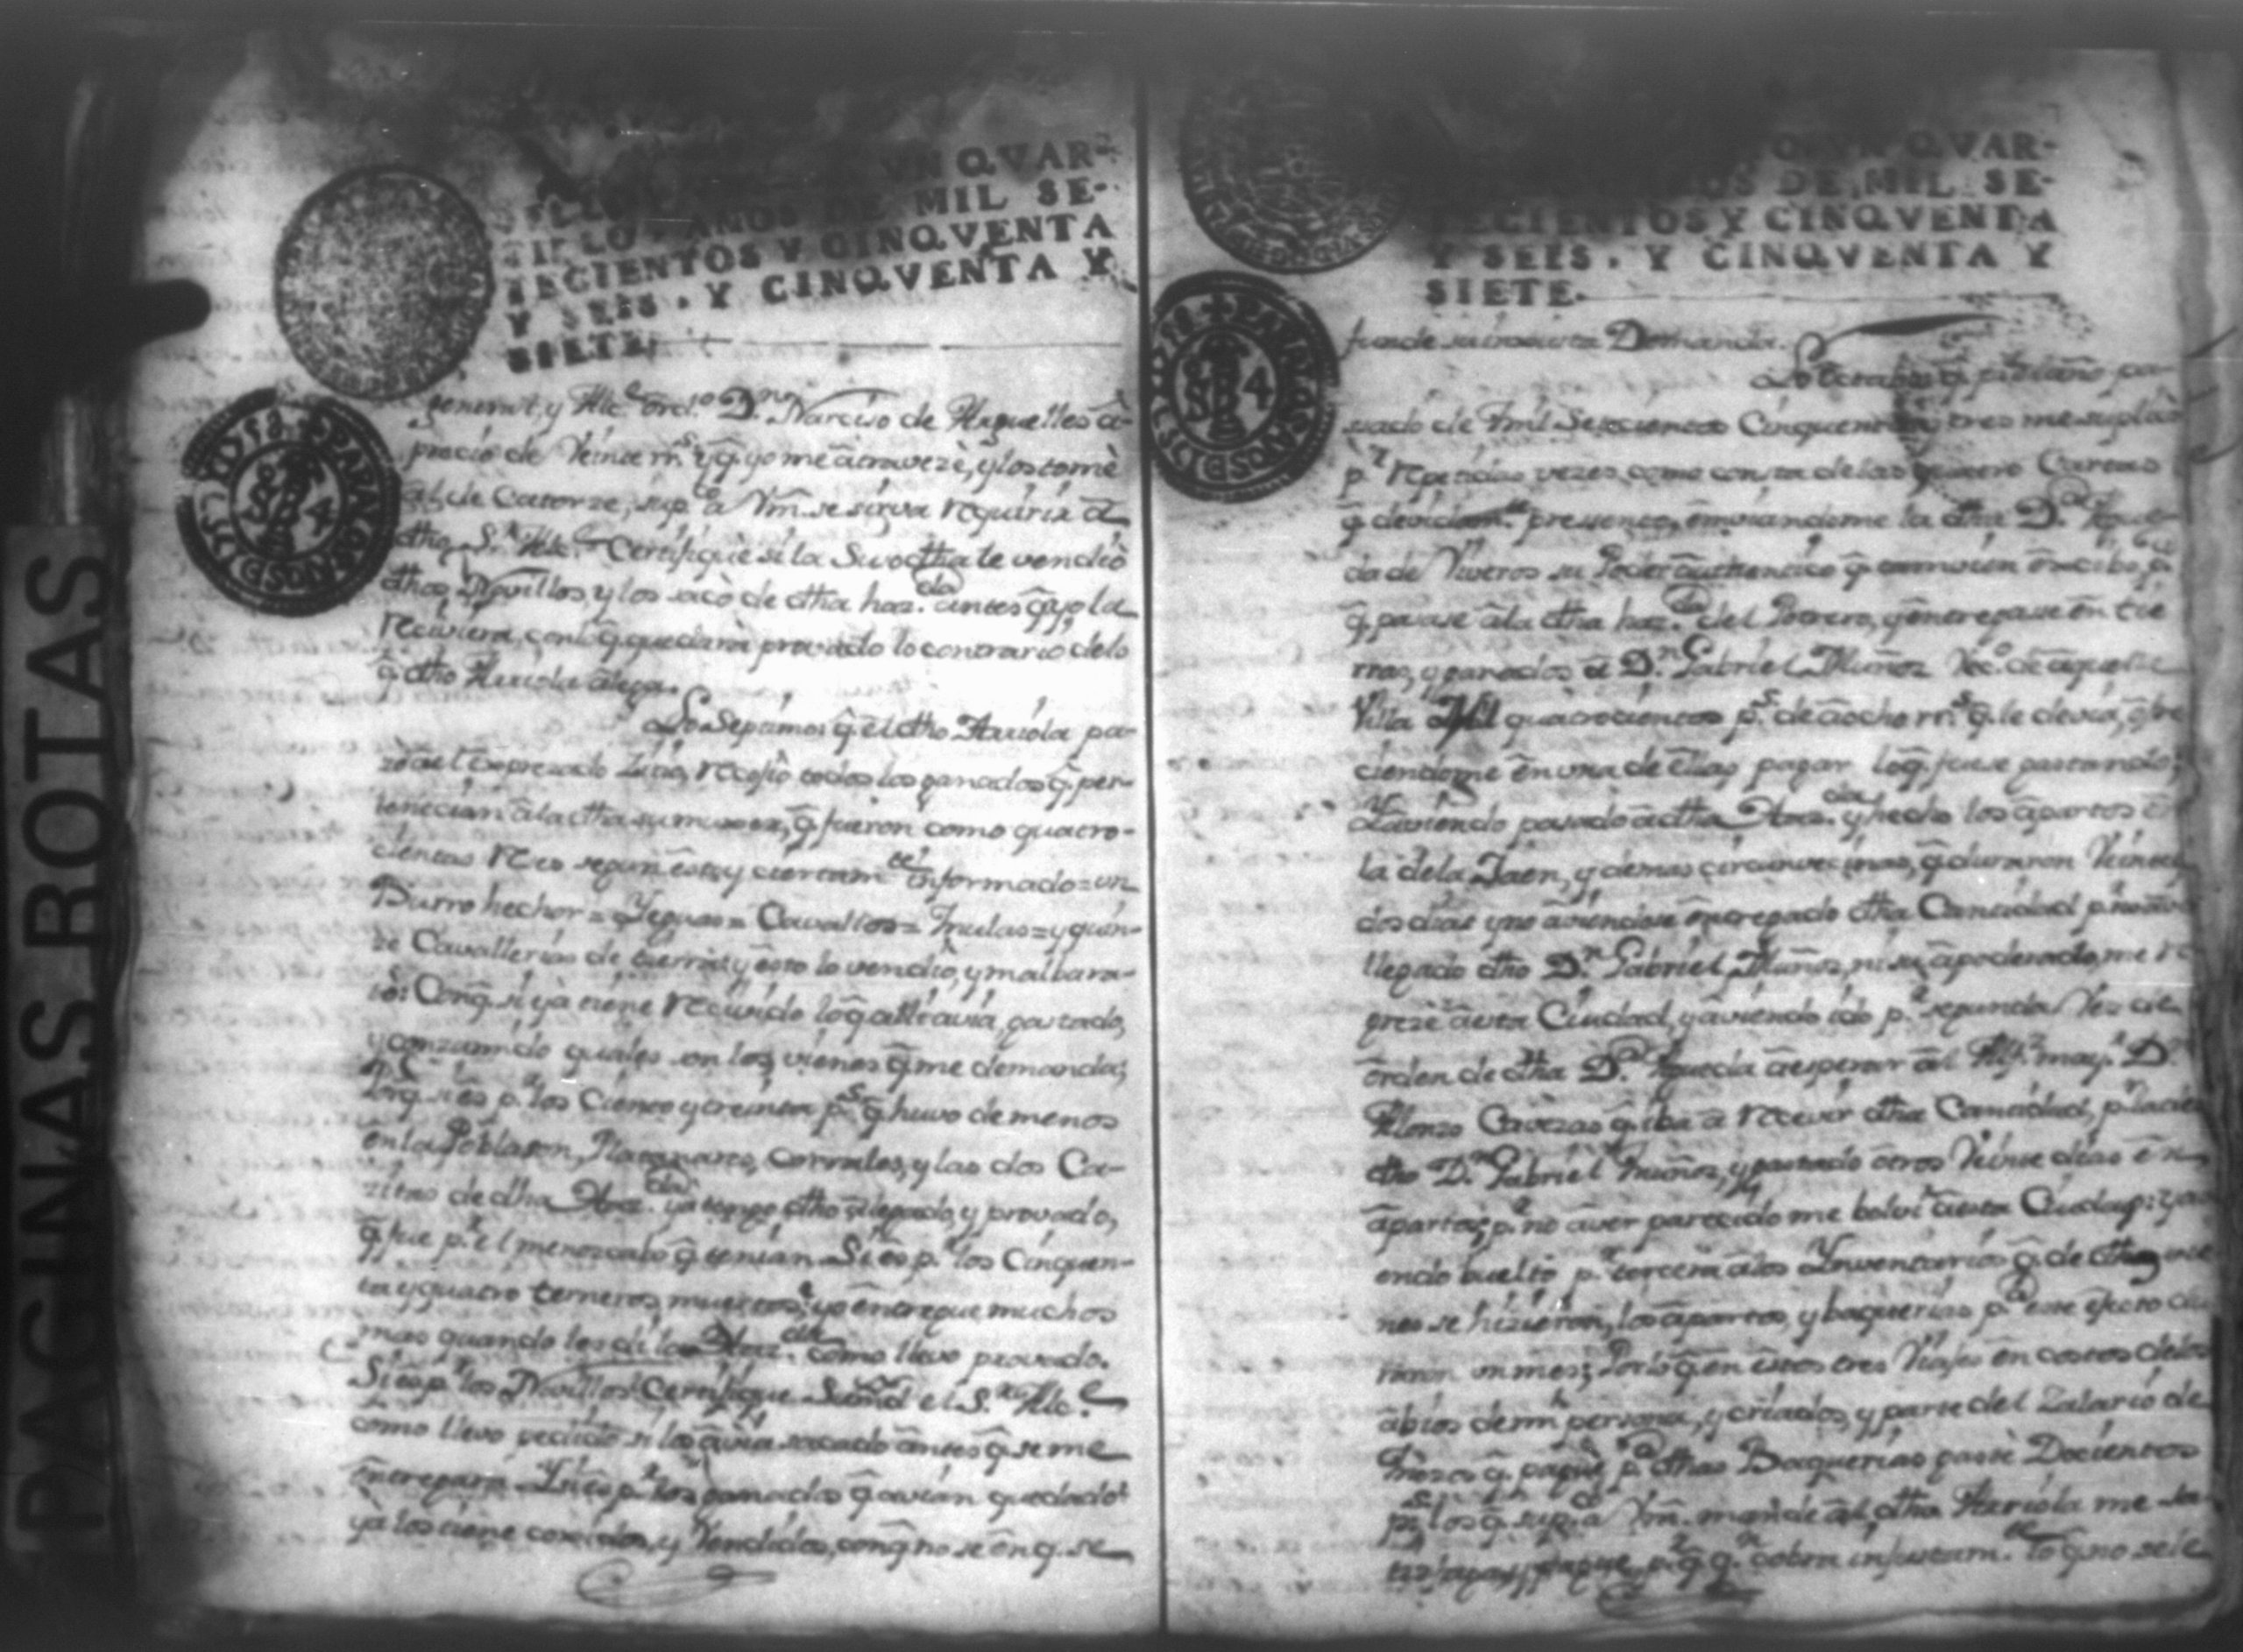 PAGINAS ROTAS
VN QVAR-
SELLO
TILLO. AÑOS DE MIL SE-
TECIENTOS Y CINQVENTA
Y SEIS. Y CINQVENTA Y
SIETE.
PARA LOS AÑOS DE 1757 1758
SB 4
general, y Alc.e ord.o D.n Narciso de Arguelles â
precio de Veinte rr.s y q̃ yo me atravezè, y los tomè
al de Catorze, sup.co a Vm̃. se sirva requirir a
dho S.r Alc.e Certifique si la Suso dha le vendiò
dhos Novillos, y los sacò de dha haz.da antes q̃ yo la
reciviera, con lo q̃ quedarà provado lo contrario delo
q̃ dho Arriola alega.
Lo Septimo: q̃ el dho Arriola pa-
zò al Exprezado Zitio, recojiò todos los ganados q̃ per-
tenecian â la dha su muger, q̃ fueron como quatro-
cientas Rezes segun estoy ciertam.te informado = un
Burro hechor = Yeguas = Cavallos = Mulas = y quin-
ze Cavallerias de tierra, y esto lo vendiò, y malbara-
tò: Con q̃ si yà tiene recivido lo q̃ alli avia, gastado,
y conzumido quales son los vienes q̃ me demanda;
Por q̃ si es p.r los Ciento y treinta p.s q̃ huvo de menos
en la Poblason, Platanares, corrales, y las dos Ca-
zitas de dha Haz.da ya tengo dho alegado, y provado,
q̃ fue p.r el menozcabo q̃ tenian Si es p.r los Cinquen-
ta y quatro terneros muertos, yo entregue muchos
mas quando les di la Haz.da como llevo provado.
Si es p.r los Novillos Certifique Su md el S.r Alc.e
como llevo pedido si los avia sacado antes q̃ se me
entregara Y si es p.r los ganados q̃ avian quedado
yà los tiene coxidos, y Vendidos, con q̃ no se en q̃ se
VN QVAR-
AÑOS DE MIL SE-
TECIENTOS Y CINQVENTA
Y SEIS. Y CINQVENTA Y
SIETE.
PARA LOS AÑOS DE 1757 1758
SB 4
funde su injusta Demanda.
Lo Octabo: q̃ p.r el año pa-
sado de mil Setecientos Cinquenta y tres me suplicò
p.r repetidas vezes, como consta de las quatro Cartas
q̃ devidam.te presento, embiandome la dha D.a Ague-
da de Viveros su Poder authentico q̃ tambien exibo, p.a
q̃ pasase â la dha haz.da del Potrero, y entregase en tie
rras, y ganados â D.n Gabriel Muñoz Vec.o de aquella
Villa Mil quatrocientos p.s de â ocho rr.s q̃ le devia, ofre
ciendome en una de ellas pagar lo q̃ fuese gastando;
Y aviendo pasado â dha Haz.da y hecho los apartos en
la de la Jaen, y demas circunvecinas, q̃ duraron Veinte y
dos dias y no aviendose entregado dha Cantidad p.r no aver
llegado dho D.n Gabriel Muñoz, ni su apoderado, me re
greze â esta Ciudad, y aviendo ido p.r segunda Vez de
orden de dha D.a Agueda â esperar al Alf.z may.r D.n
Alonzo Cavezas q̃ iba a recevir dha Cantidad, p.r
dho D.n Gabriel Muñoz, y gastado otros Veinte dias en
apartar; p.r no aver parecido me bolvi â esta Ciudad: y avi
endo buelto p.r tercera â los Ynventarios q̃ de dhos vie
nes se hizieron, los apartos, y baquerias p.a este efecto du
raron un mes; Por lo q̃ en estos tres Viajes en costos de los
abios de mi persona, y criados, y parte del Zalario de
Mozos q̃ pague p.a dhas Baquerias gastè Docientos
p.s los q̃ sup.co a Vm̃. mande al dho Arriola me sa
tisfaga, y pague, p.r q̃ q.n cobra injustam.te lo q̃ no se le